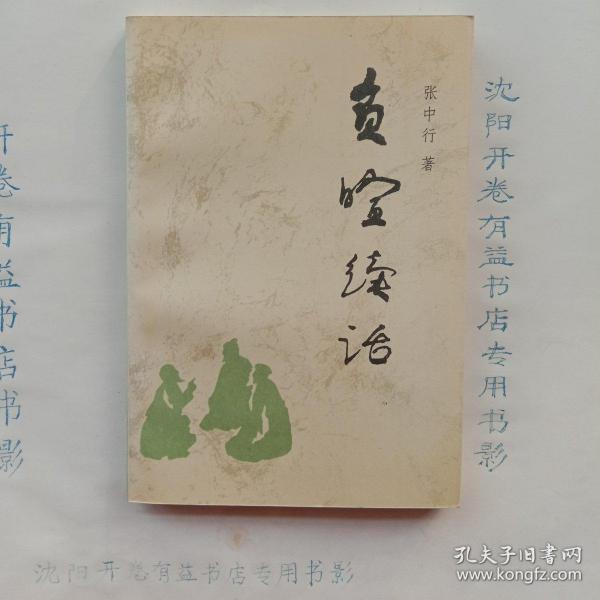 负暄续话
张中行 著
沈阳开卷有益书店专用书影
开卷有益书店书影
沈阳开卷有益书店专用书影
孔夫子旧书网
www.kongfz.com